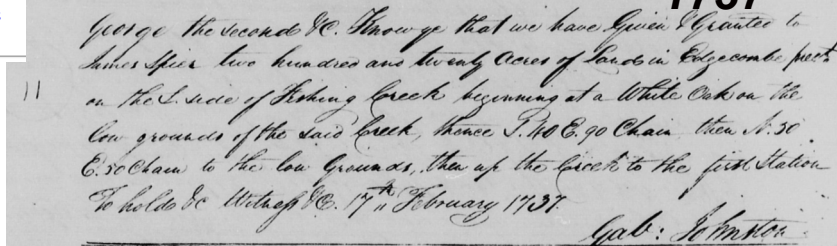 1737
George the second &C. Know ye that we have Given & Granted to
James Spier two hundred and twenty Acres of Land in Edgecombe prect
11 on the S. side of Fishing Creek beginning at a White Oak on the
low grounds of the said Creek, thence S. 40 E. 90 Chain then N. 50
E. 50 Chain to the low Grounds, then up the Creek to the first Station
To hold &c Witness &C. 17th February 1737.
Gab: Johnston